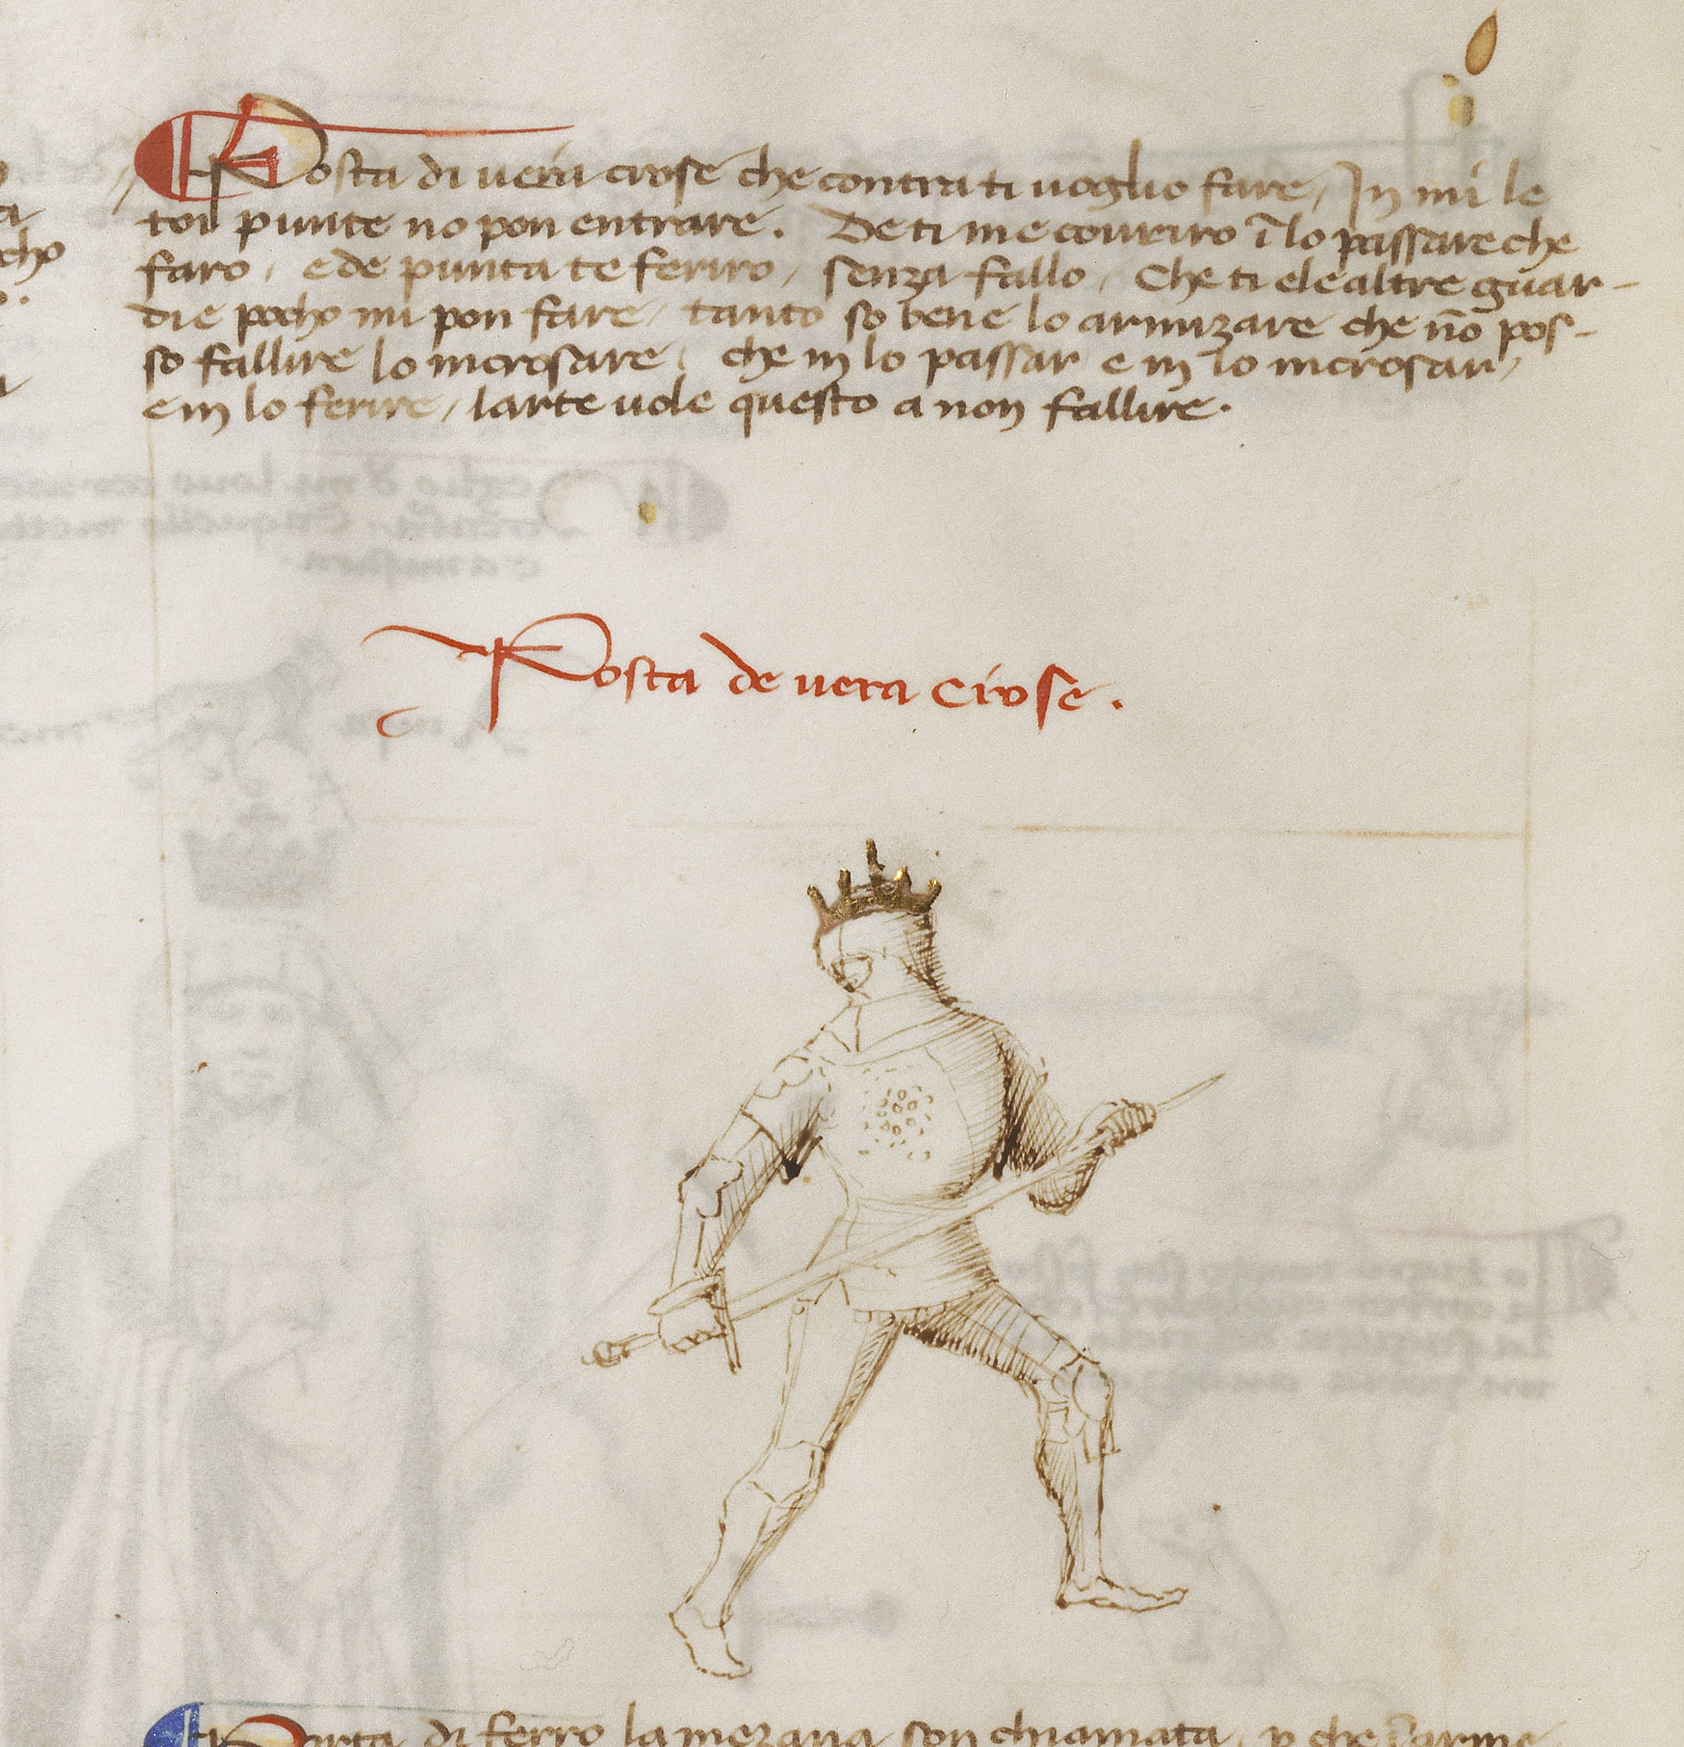 Posta di vera crose che contra ti uoglio fare, In mi le
toy punte no pon entrare. De ti me couriro ī lo passare che
faro, e de punta te feriro, senza fallo, Che ti e le altre guar-
die pocho mi pon fare, tanto so bene lo armizare che nō pos-
so fallire lo incrosare, che in lo passar e in lo incrosar,
e in lo ferire, larte uole questo a non fallire.
Posta de uera crose.
Porta di ferro la mezana son chiamata, p che